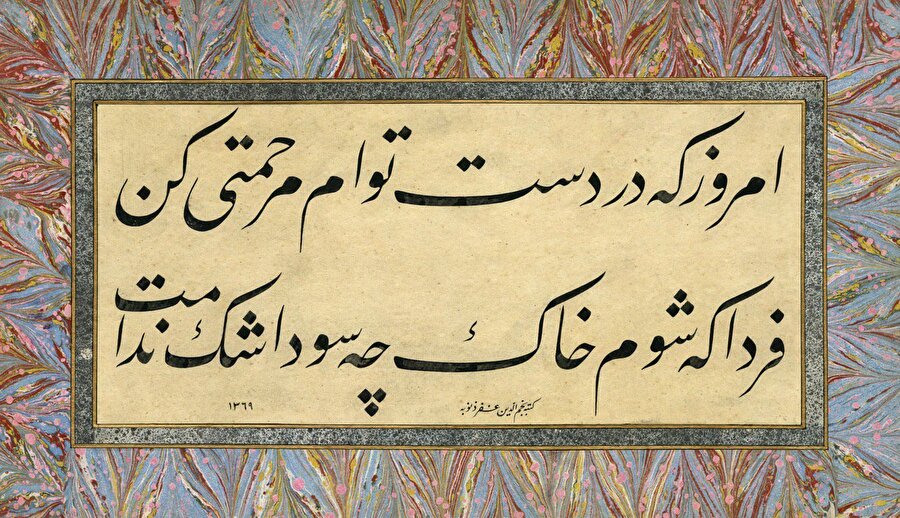 امروز که در دست توام مرحمتی کن
فردا که شوم خاک چه سود اشک ندامت
کتبه نجم الدین غفر ذنوبه
١٣٦٩